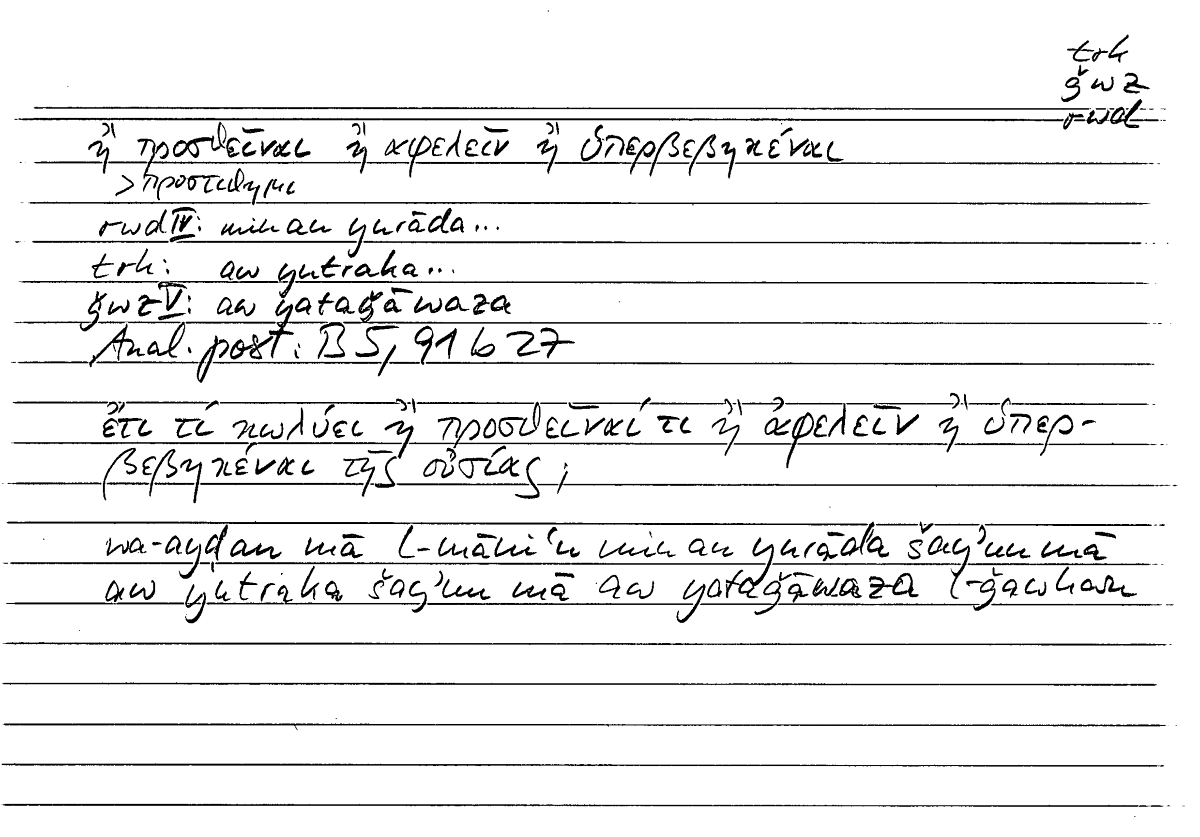 trk
ǧwz
rwd
ἢ προσθεῖναι ἢ αφελεῖν ἢ ὑπερβεβηκέναι
> προστιθημι
rwd IV: min an yurāda...
trk: aw yutraka...
ǧwz V: aw yataǧāwaza
Anal. post.: B 5, 91 b 27
ἔτι τί κωλύει ἢ προσθεῖναί τι ἢ ἀφελεῖν ἢ ὑπερ-
βεβηκέναι τῆς οὐσίας;
wa-ayḍan mā l-māniʿu min an yurāda šayʾun mā
aw yutraka šayʾun mā aw yataǧāwaza l-ǧawharu